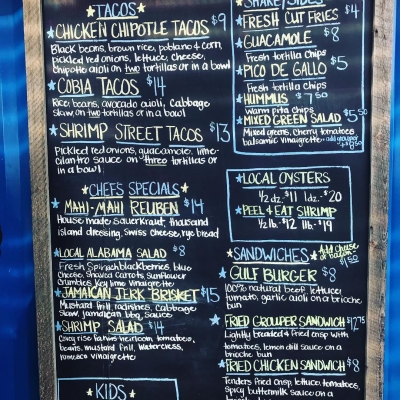 TACOS
CHICKEN CHIPOTLE TACOS $9
Black beans, brown rice, poblano + corn,
pickled red onions, lettuce, cheese,
chipotle aioli on two tortillas or in a bowl
COBIA TACOS $14
Rice, beans, avocado aioli, cabbage
slaw on two tortillas or in a bowl
SHRIMP STREET TACOS $13
Pickled red onions, guacamole, lime-
cilantro sauce on three tortillas or
in a bowl
CHEFS SPECIALS
MAHI-MAHI REUBEN $14
House made sauerkraut, thousand
island dressing, swiss cheese, rye bread
LOCAL ALABAMA SALAD $8
Fresh spinach, blackberries, blue
cheese, shaved carrots, sunflower
Key lime vinaigrette
JAMAICAN JERK BRISKET $15
Mustard radishes, cabbage
slaw, jamaican bbq, sauce
SHRIMP SALAD $14
rice, heirloom, tomatoes,
beans, mustard, watercress,
vinaigrette
KIDS
SHARE/SIDES
FRESH CUT FRIES $4
GUACAMOLE $8
Fresh tortilla chips
PICO DE GALLO $5
Fresh tortilla chips
HUMMUS $7.50
Warm pita chips
MIXED GREEN SALAD $5.50
Mixed greens, cherry tomatoes
balsamic vinaigrette - add grouper
LOCAL OYSTERS
½ dz. $11 1dz. $20
PEEL & EAT SHRIMP
½ lb. $12 lb. $19
SANDWICHES Add cheese
or bacon $1.50
GULF BURGER $8
100% natural beef, lettuce
tomato, garlic aioli on a brioche
bun
FRIED GROUPER SANDWICH $12.75
Lightly breaded & fried crisp with
tomatoes, lemon dill sauce on a
brioche bun
FRIED CHICKEN SANDWICH $8
Tenders fried crisp, lettuce, tomatoes,
spicy buttermilk sauce on a